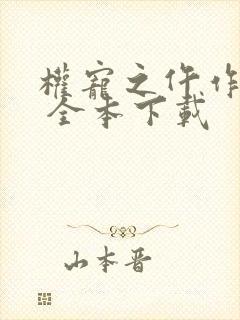 權寵之仵作
全本下載
山本晋